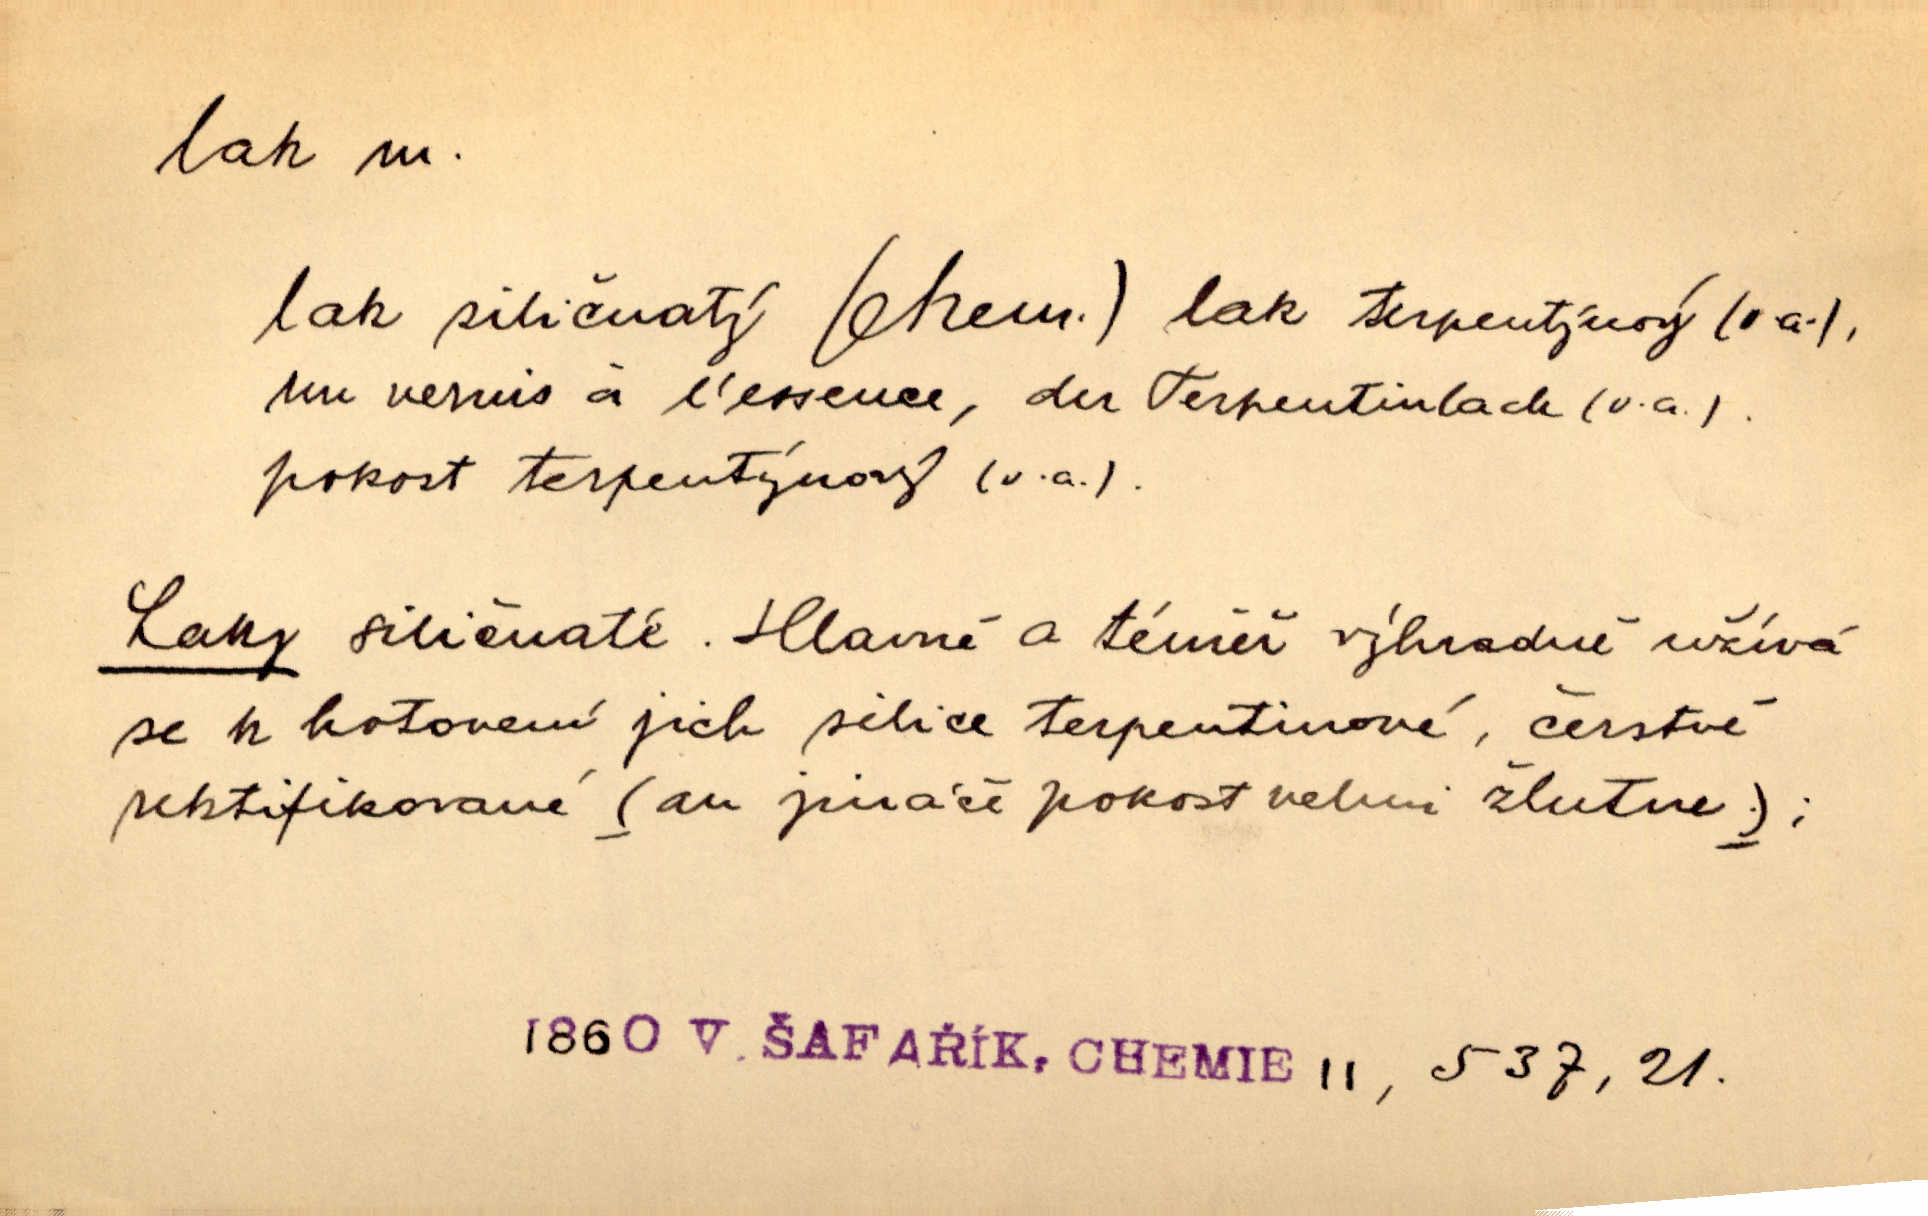 lak m.
lak siličnatý (chem.) lak terpentýnový (v.a.),
un vernis à l'essence, der Terpentinlack (v.a.).
pokost terpentýnový (v.a.).
Laky siličnaté. Hlavně a téměř výhradně užívá
se k hotovení jich silice terpentinové, čerstvě
rektifikované (an jináče pokost velmi žlutne.);
1860 V. ŠAFAŘÍK, CHEMIE II, 537, 21.